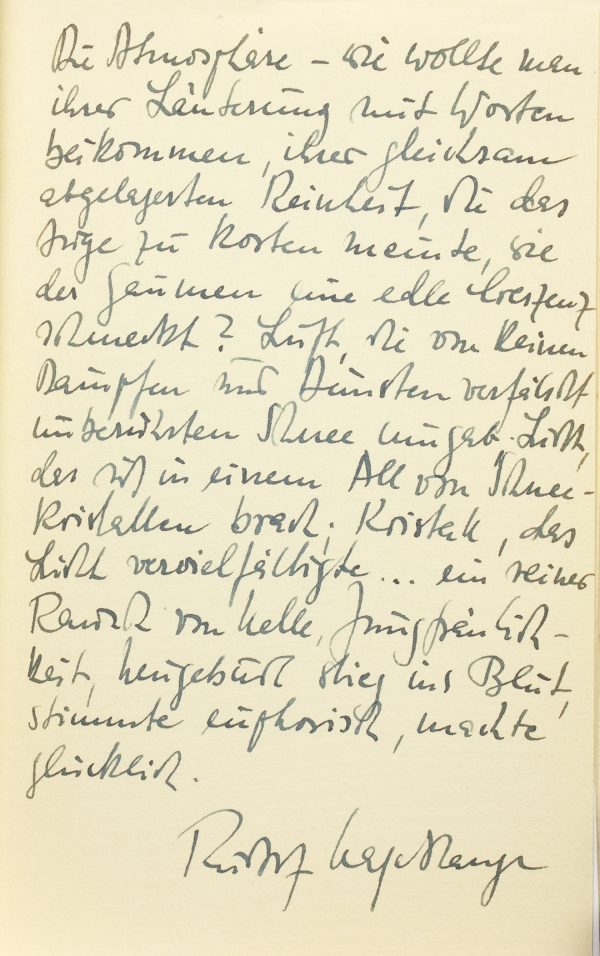 Die Atmosphäre – wie wollte man
ihrer Läuterung mit Worten
beikommen, ihrer gleichsam
abgelagerten Reinheit, die das
Auge zu kosten meinte, wie
der Gaumen eine edle Creszenz
schmeckt? Luft, die von keinen
Dämpfen und Dünsten verfälscht
unberührten Schnee umgab. Licht,
das sich in einem All von Schnee-
kristallen brach; Kristall, das
Licht vervielfältigte... ein reiner
Rausch von Helle, Jungfräulich-
keit, Neugeburt stieg ins Blut,
stimmte euphorisch, machte
glücklich.
Rudolf Hagelstange